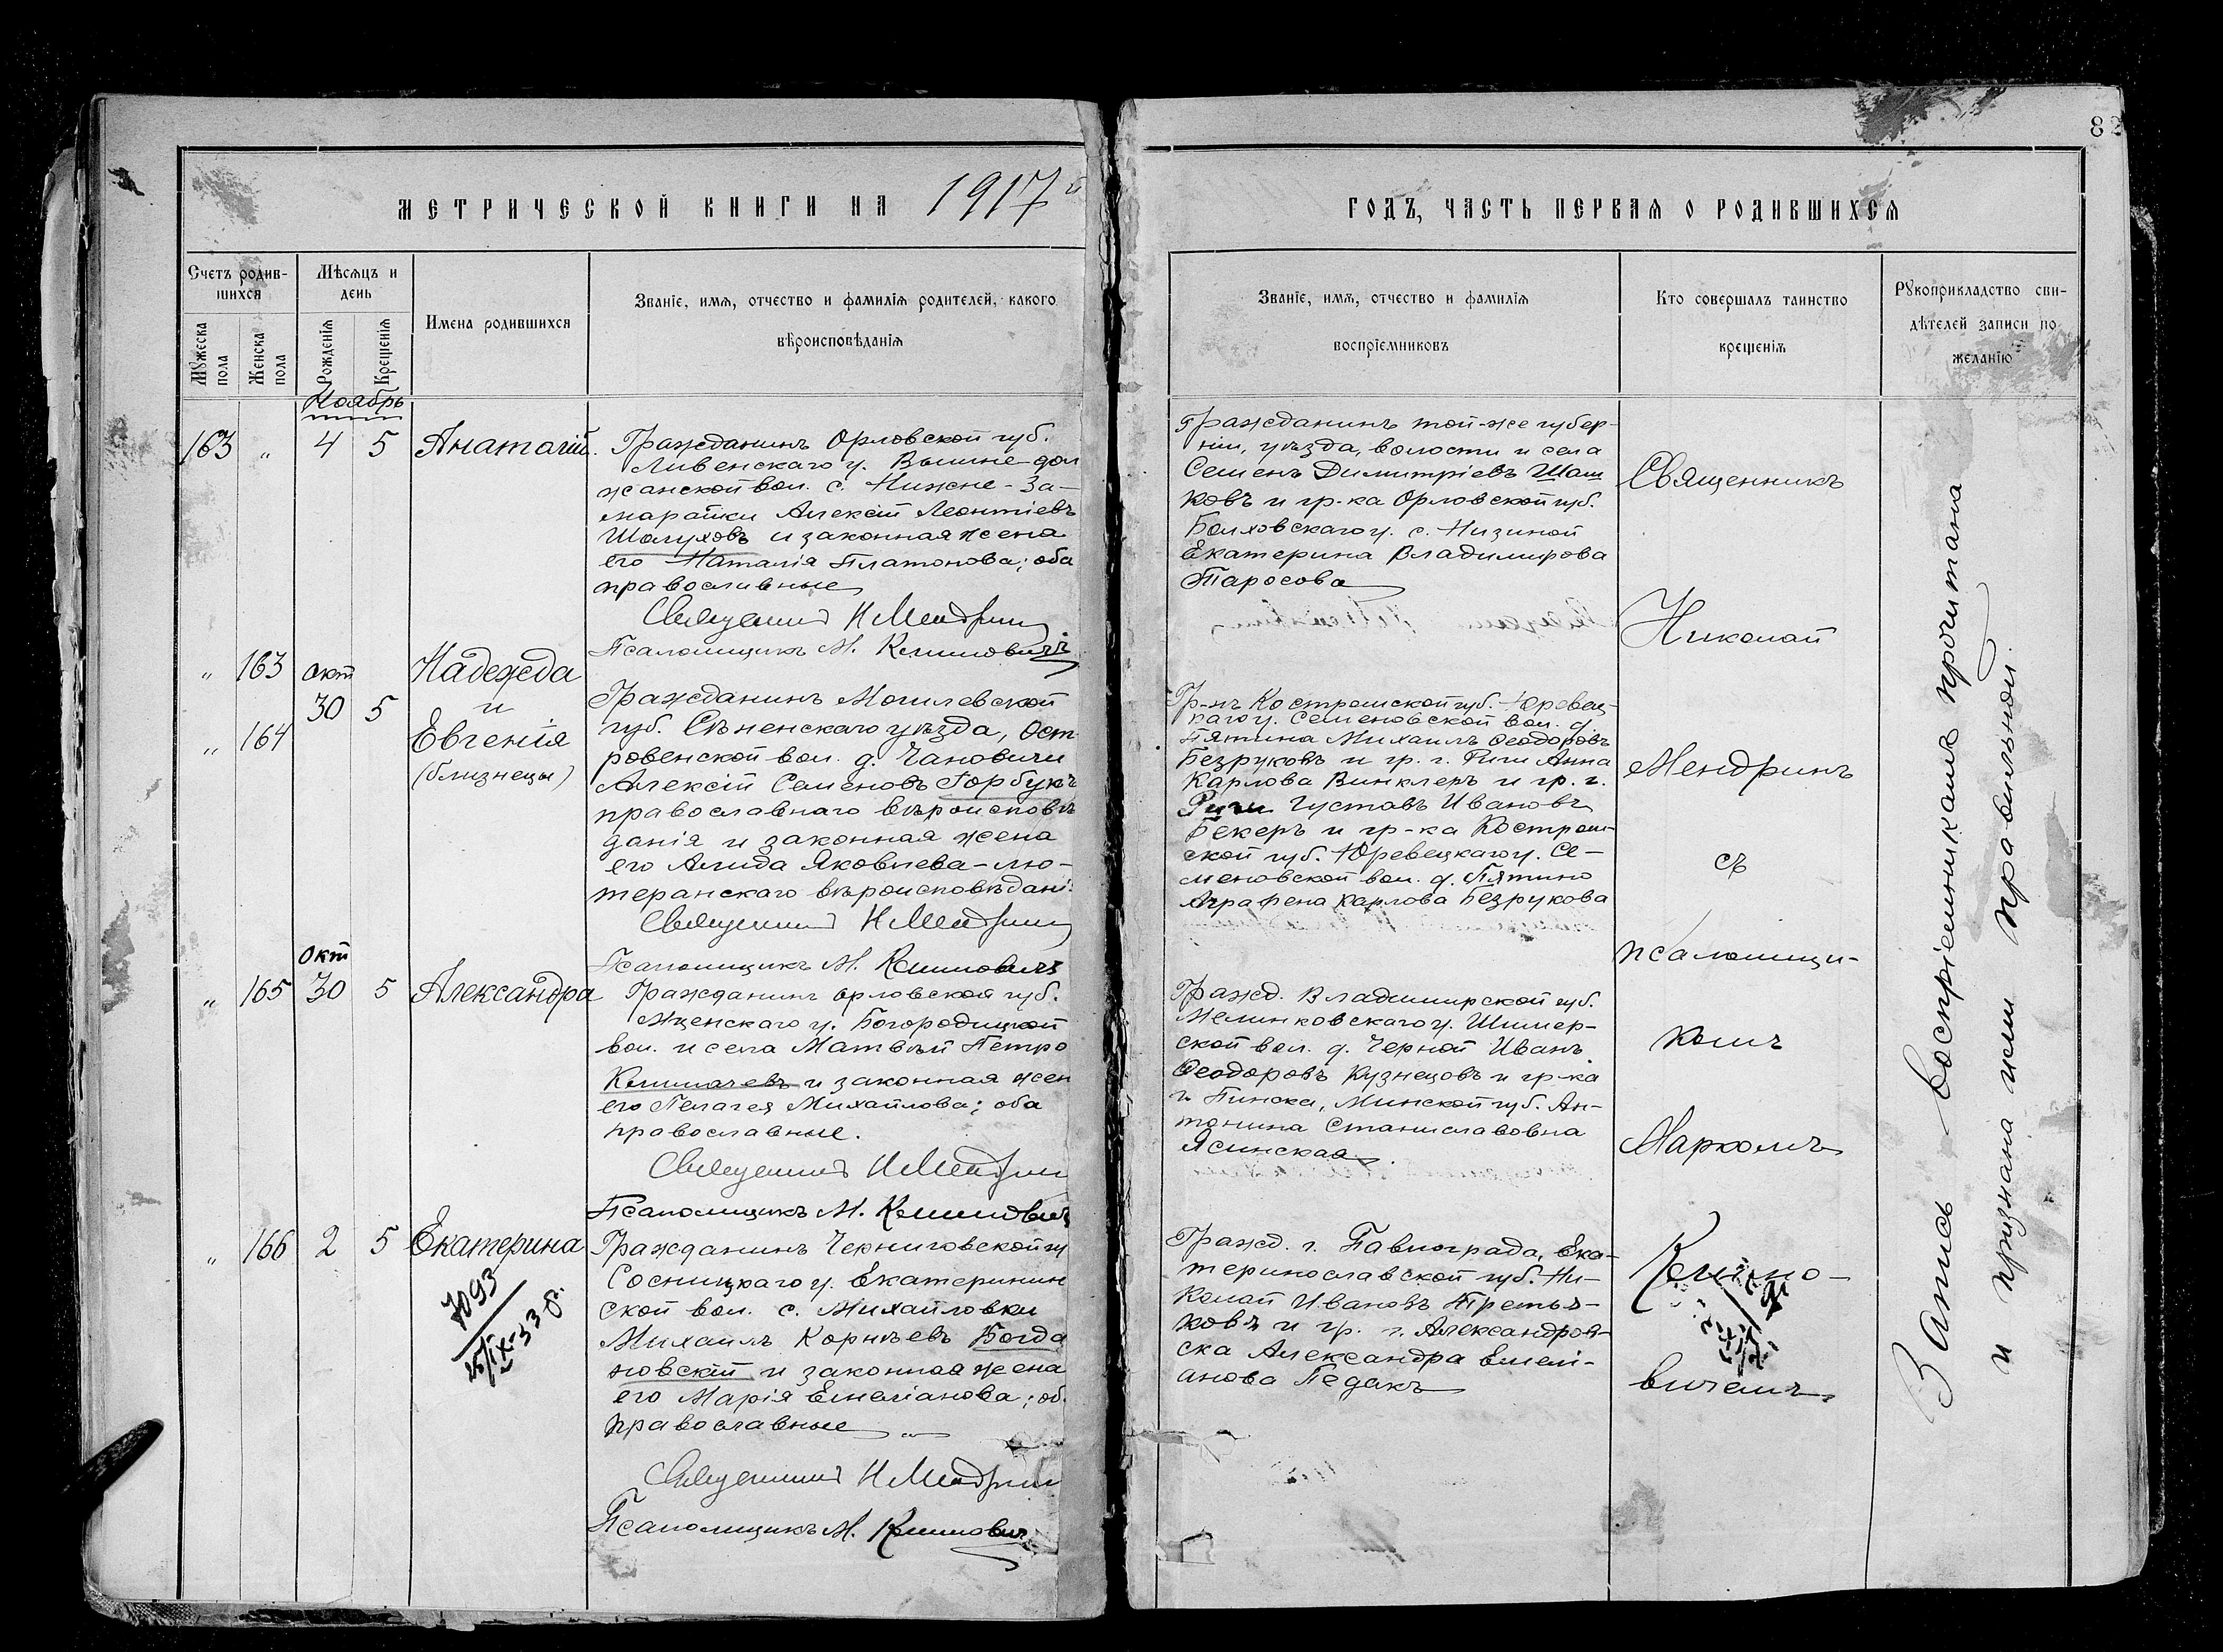 82
МЕТРИЧЕСКОЙ КНИГИ НА 1917й
ГОДЪ, ЧАСТЬ ПЕРВАЯ О РОДИВШИХСЯ
Счетъ родив-
шихся
Мужеска
пола
Женска
пола
Мѣсяцъ и
день
Рожденія
Крещенія
Имена родившихся
Званіе, имя, отчество и фамилія родителей, какого
вѣроисповѣданія
Званіе, имя, отчество и фамилія
воспріемниковъ
Кто совершалъ таинство
крещенія
Рукоприкладство сви-
дѣтелей записи по
желанію
Ноябрь
163 „ 4 5 Анатолій.
Гражданинъ Орловской губ.
Ливенскаго у. Вышне-дол
жанской вол. с. Нижне-За-
маратки Алексій Леонтіевъ
Шолуховъ и законная жена
его Наталія Платонова; оба
православные
Священникъ Н Мендринъ
Псаломщикъ М. Климовичъ
Гражданинъ той-же губер-
ніи, уѣзда, волости и села
Семенъ Димитріевъ Шаш
ковъ и гр-ка Орловской губ.
Болховскаго у. с. Низиной
Екатерина Владимирова
Таросова
„ 163 окт 30 5 Надежда
и
„ 164 Евгенія
(близнецы)
Гражданинъ Могилевской
губ. Сѣненскаго уѣзда, Ост
ровенской вол. д. Чановичи
Алексій Семеновъ Горбукъ
православнаго вѣроисповѣ
данія и законная жена
его Алида Яковлева-лю-
теранскаго вѣроисповѣдані
Священникъ Н Мендринъ
Псаломщикъ М. Климовичъ
Гр-нъ Костромской губ. Юревец-
каго у. Семеновской вол. д.
Пятина Михаилъ Феодоровъ
Безруковъ и гр. г. Риги Анна
Карлова Винклеръ и гр. г.
Риги Густавъ Ивановъ
Бекеръ и гр-ка Костром-
ской губ. Юревецкаго у. Се-
меновской вол. д. Пятино
Аграфена Карлова Безрукова
„ 165 Окт 30 5 Александра
Гражданинъ Орловской губ.
Мценскаго у. Богородицкой
вол. и села Матвѣй Петро
Климачевъ и законная жен
его Пелагея Михайлова; оба
православные.
Священникъ Н Мендрин
Псаломщикъ М. Климович
Гражд. Владимирской губ.
Меленковскаго у. Шимер-
ской вол. д. Черной Иванъ
Феодоровъ Кузнецовъ и гр-ка
г. Пинска, Минской губ. Ан-
тонина Станиславовна
Ясинская
„ 166 2 5 Екатерина
7093
25/IX-33 г.
Гражданинъ Черниговской гу
Сосницкаго у. Екатеринин
ской вол. с. Михайловки
Михаилъ Корнѣевъ Богда
новскій и законная жена
его Марія Емеліанова; об.
православные
Священникъ Н Мендрин
Псаломщикъ М. Климович
Гражд. г. Павлограда, Ека-
теринославской губ. Ни-
колай Ивановъ Третья-
ковъ и гр. г. Александров-
ска Александра Емелі-
анова Педакъ
Священникъ
Николай
Мендринъ
съ
псаломщи-
комъ
Маркомъ
Климо-
вичемъ
Запись воспріемникамъ прочитана
и признана ими правильной.